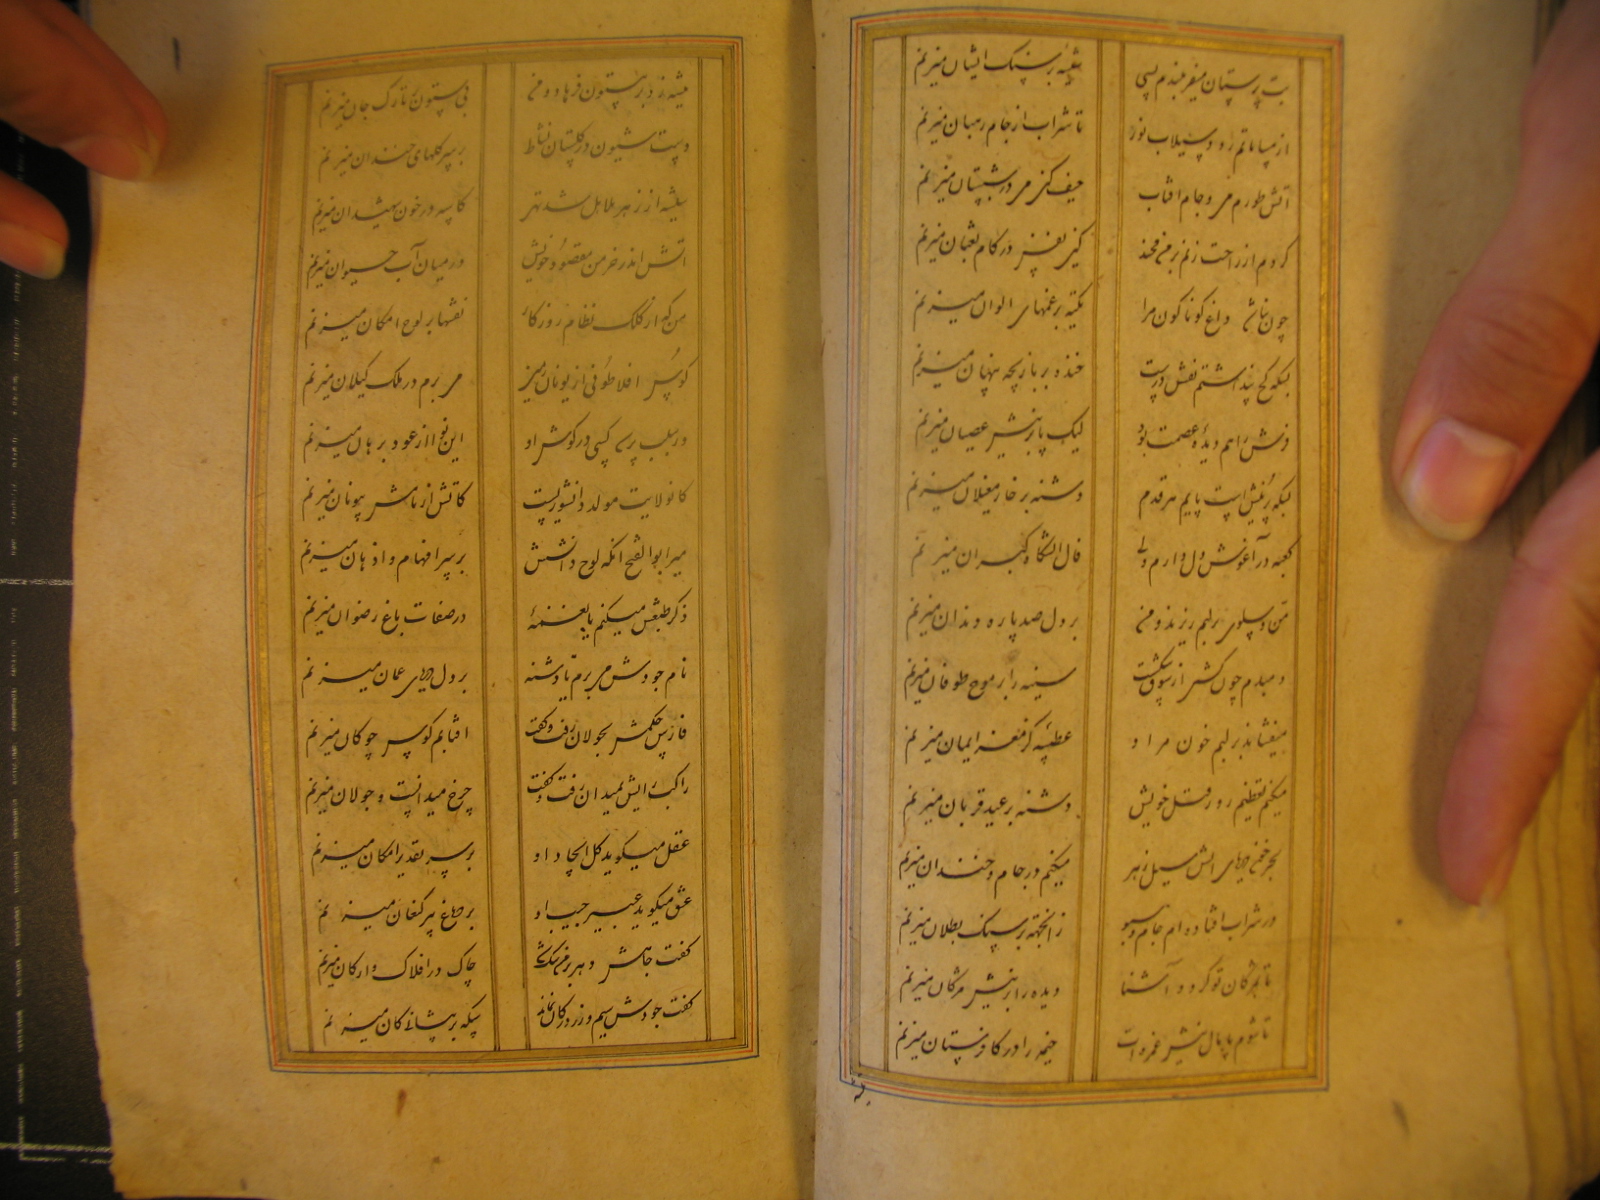 بت پرستان میفریبندم پسی تیشه بر سنگ ایشان میزنم
از میا ماتم رود سیلاب نور تا شراب از جام رهبان میزنم
آتش طورم می و جام آفتاب حیف کز می در شبستان میزنم
کردم از راحت زنم بر من مخند کز نفس در کام ثعبان میزنم
چون داغ گوناگون مرا تکیه بر غمهای الوان میزنم
بسکه کج پنداشتم نقش درست خنده بر بازیچه پنهان میزنم
فرش راهم دیده عصمت بود لیک پا بر نیش عصیان میزنم
بسکه پر نیش است پایم هر قدم دشنه بر خار مغیلان میزنم
کعبه در آغوش دل دارم ولی فال آتشگاه گبران میزنم
من و سلوی بر لبم ریزند و من بر دل صد پاره دندان میزنم
دمبدم چون کشتی از شوق شکست سینه را بر موج طوفان میزنم
میفشاند بر لبم خون مراد عطسه کز مغز ایمان میزنم
میکنم تعظیم روز قتل خویش دشنه بر عید قربان میزنم
بحر خنی دریای آتش سیل زهر میکنم در جام و خندان میزنم
در شراب افتاده ام جام و سبو
تا بمژگان تو گردد آشنا دیده را بر نیش مژگان میزنم
تا شوم پامال نیش غمزه ات خیمه را در کافرستان میزنم
تیشه زد بر بیستون فرهاد و من بی ستون بر تارک جان میزنم
دست شیون در گلستان نشاط بر سر گلهای خندان میزنم
شیشه از زهر هلاهل شد تهی کاسه در خون شهیدان میزنم
آتش اندر خرمن مقصود خویش در میان آب حیوان میزنم
من که از کلک نظام روزگار نقشها بر لوح امکان میزنم
کوس افلاطونی از یونان میز می برم در ملک گیلان میزنم
ور سبب پرسد کسی در گوش او این نوا از عود برهان میزنم
کانولایت مولد دانشوریست کاتش از نامش بیونان میزنم
میر ابوالفتح آنکه لوح دانشش بر سر افهام و اذهان میزنم
ذکر طبعش میکنم یا نغمهٔ در صفات باغ رضوان میزنم
نام جودش می برم یا دشنه بر دل دریای عمان میزنم
فارس حکمش بجولان رفت و گفت آفتابم گوی سر چوگان میزنم
راکب رایش بمیدان رفت و گفت چرخ میدانست و جولان میزنم
عقل میگوید کل ایجاد او بر سر تقدیر امکان میزنم
عشق میگوید عبیر جیب او بر دماغ پیر کنعان میزنم
گفت جاهش دهر بر من تنگ شد چاک در افلاک و ارکان میزنم
گفت جودش سیم و زر در کان نماند سکه بر پیشانی کان میزنم